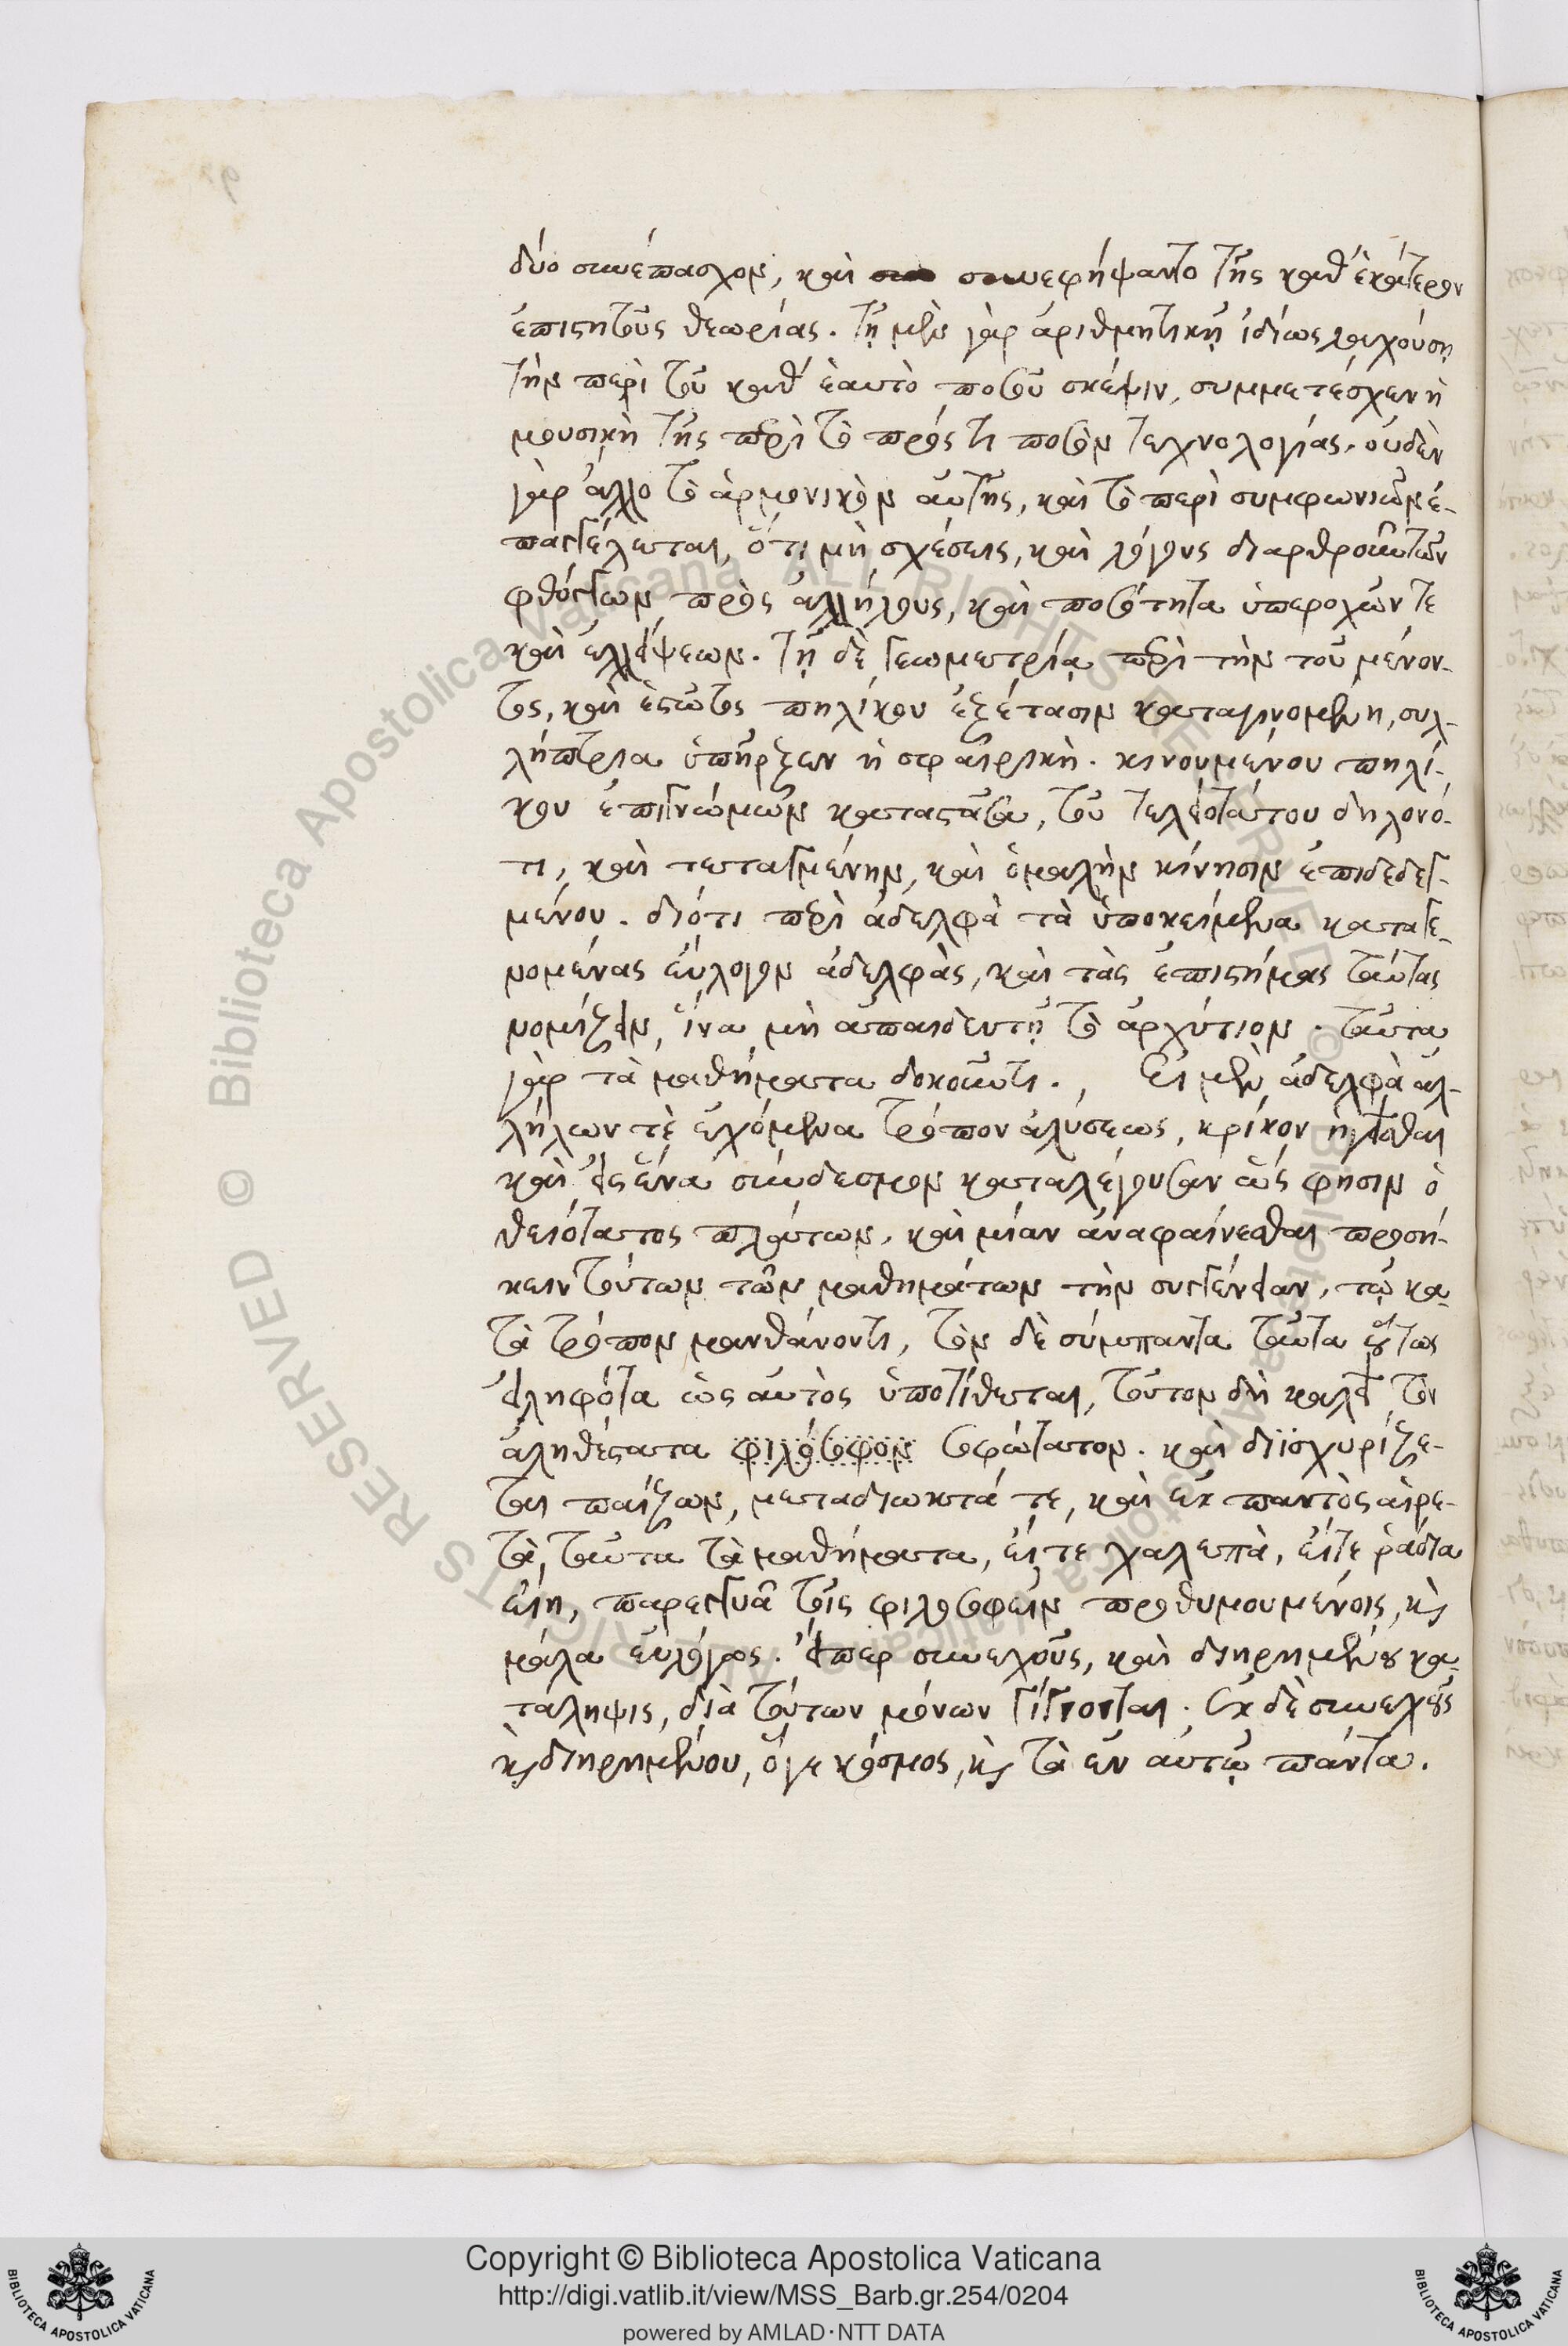 δύο συνέπασχον, καὶ συνεφήψαντο τῆς καθ' ἑκάτερον
ἐπιστητοῦς θεωρίας. τῇ μὲν γὰρ ἀριθμητικῇ ἰδίως λαχούσῃ
τὴν περὶ τοῦ καθ' ἑαυτὸ ποσοῦ σκέψιν, συμμετέσχεν ἡ
μουσικὴ τῆς περὶ τὸ πρός τι ποσὸν τεχνολογίας. οὐδὲν
γὰρ ἄλλο τὸ ἁρμονικὸν αὐτῆς, καὶ τὸ περὶ συμφωνιῶν ἐ-
παγγέλεται, ὅτι μὴ σχέσεις, καὶ λόγους διαρθροῦν τῶν
φθόγγων πρὸς ἀλλήλους, καὶ ποσότητα ὑπεροχῶν τε
καὶ ἐλλείψεων. τῇ δὲ γεωμετρίᾳ περὶ τὴν τοῦ μένον-
τος, καὶ ἑστῶτος πηλίκου ἐξέτασιν καταγινομένη, συλ-
λήπτρια ὑπῆρξεν ἡ σφαιρικὴ. κινουμένου πηλί-
κου ἐπιγνώμων καταστᾶσα, τοῦ τελεοτάτου δηλονό-
τι, καὶ τεταγμένην, καὶ ὁμαλὴν κίνησιν ἐπιδεδεγ-
μένου. διότι περὶ ἀδελφὰ τὰ ὑποκείμενα καταγε-
νομένας εὔλογον ἀδελφὰς, καὶ τὰς ἐπιστήμας ταύτας
νομίζειν, ἵνα μὴ ἀπαιδευτῇ τὸ ἀρχύτιον. ταῦτα
γὰρ τὰ μαθήματα δοκοῦντι. Εἰ μὲν ἀδελφὰ ἀλ-
λήλων τὲ ἐχόμενα τρόπον ἁλύσεως, κρίκον ἡγεῖσθαι
καὶ εἰς ἕνα σύνδεσμον καταλέγουσαν ὥς φησιν ὁ
θειότατος πλάτων, καὶ μίαν ἀναφαίνεσθαι προσή-
κειν τούτων τῶν μαθημάτων τὴν συγγένειαν, τῷ κα-
τὰ τρόπον μανθάνοντι, τὸν δὲ σύμπαντα ταῦτα οὕτως
εἰληφότα ὡς αὐτὸς ὑποτίθεται, τοῦτον δὴ καλεῖ τὸν
ἀληθέστατα φιλόσοφον σοφώτατον. καὶ διϊσχυρίζε-
ται παίζων, μεταδιωκτά τε, καὶ ἐκ παντὸς αἱρε-
τὰ, ταῦτα τὰ μαθήματα, εἴτε χαλεπὰ, εἴτε ῥάδια
εἴη, παρεγγυᾶ τοῖς φιλοσοφεῖν προθυμουμένοις, κỳ
μάλα εὐλόγως. εἴπερ συνεχοῦς, καὶ διῃρημένου κα-
τάληψις, διὰ τούτων μόνων γίγνονται. ἐκ δὲ συνεχοῦς
κỳ διῃρημένου, ὅγε κόσμος, κỳ τὰ ἐν αὐτῷ πάντα.
Copyright © Biblioteca Apostolica Vaticana
http://digi.vatlib.it/view/MSS_Barb.gr.254/0204
powered by AMLAD·NTT DATA